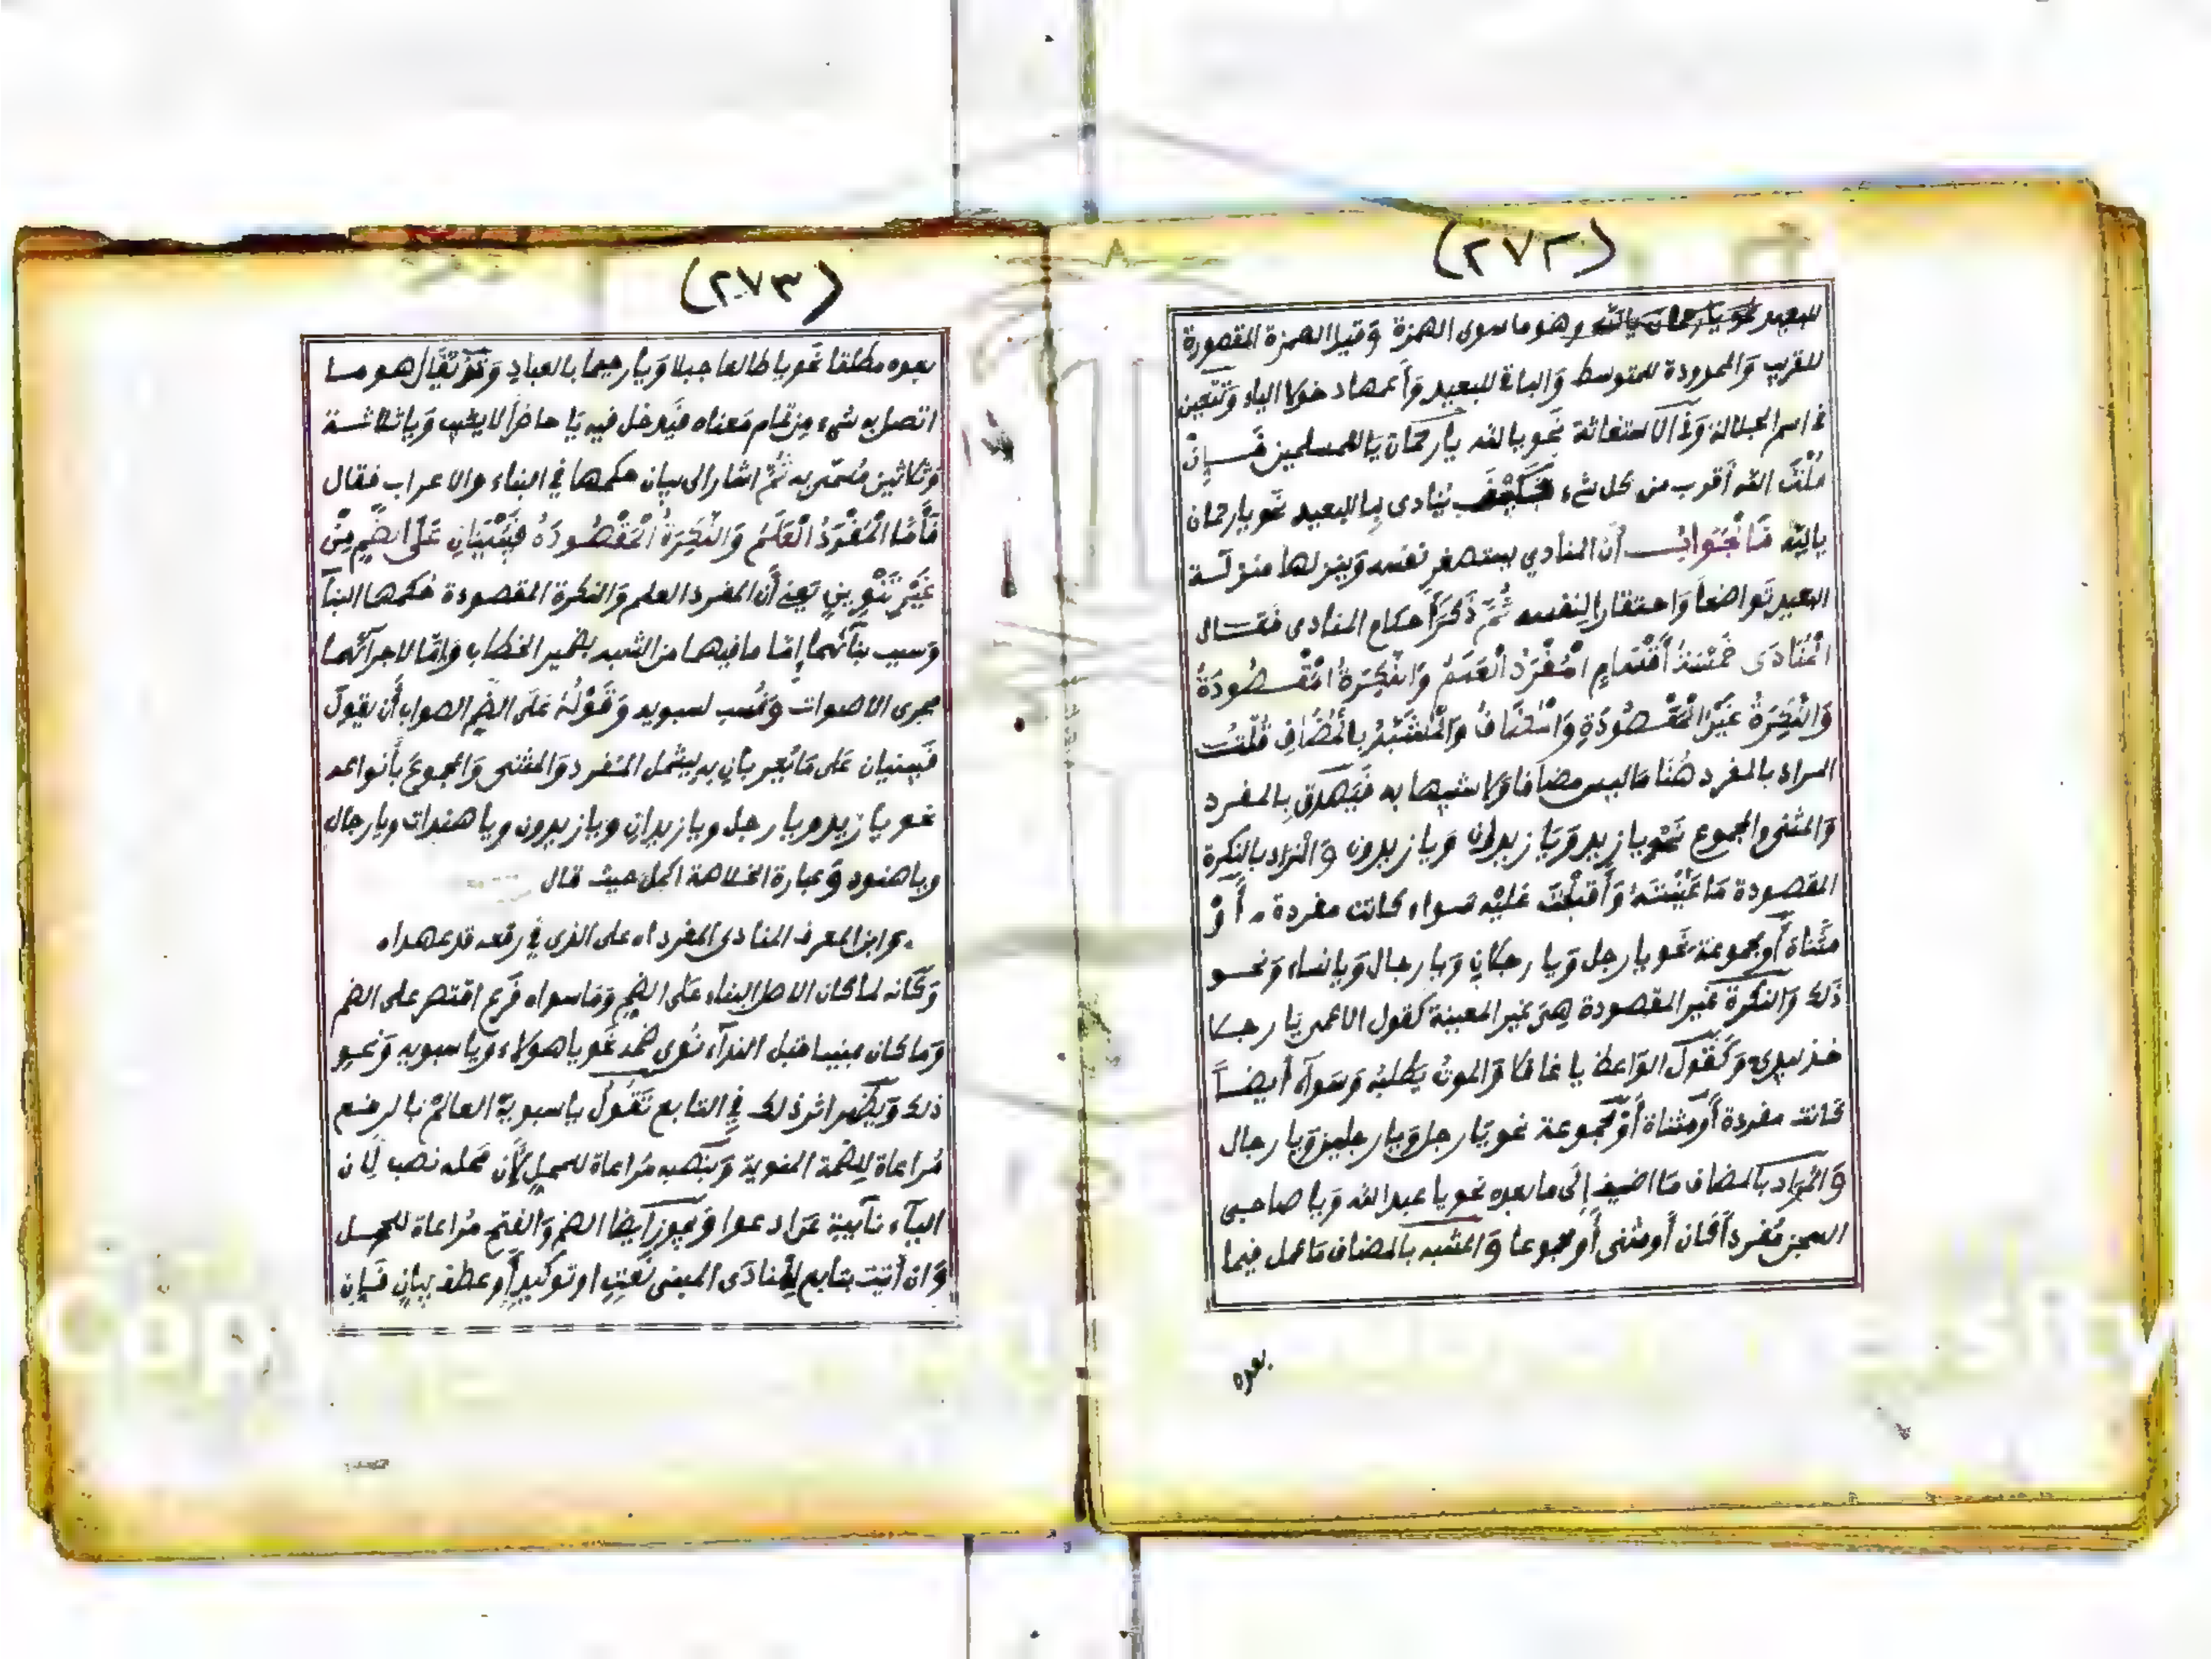 (٢٧٢)
للبعيد نحو يا رحمان يا الله وهو ما سوى الهمزة وَقيل الهمزة المقصورة
للقريب وَالممدودة للمتوسط وَالباقي للبعيد وَأعمها دخولا الياء وَتتعين
في اسم الجلالة وَفي الاستغاثة نحو يا لله يا رحمان يا للمسلمين فَإِنْ
قُلْتَ الله أقرب من كل شيء فَكَيْفَ يُنادى بِيا للبعيد نحو يا رحمان
يا الله فَالْجَوابُ أن المنادي يستصغر نفسه وَينزلها منزلة
البعيد تَواضعاً وَاحتقاراً لِنفسه ثُمَّ ذَكَرَ أحكام المنادى فَقال
الْمُنَادَى خَمْسَةُ أَقْسَامٍ الْمُفْرَدُ الْعَلَمُ وَالنَّكِرَةُ الْمَقْصُودَةُ
وَالنَّكِرَةُ غَيْرُ الْمَقْصُودَةِ وَالْمُضَافُ وَالْمُشَبَّهُ بِالْمُضَافِ قُلْتُ
المراد بالمفرد هُنا مَا ليس مضافا وَلا شبيها به فَيَصْدق بِالمفرد
وَالمثنى والمجموع نَحْو يا زيد وَيَا زيدان وَيا زيدون وَالْمراد بالنكرة
المقصودة مَا عَيَّنْتَهُ وَأَقبَلْتَ عَلَيْه سواء كانت مفردة أَوْ
مثَناة أو مجموعة نَحو يا رجل وَيا رجلان وَيا رجال وَيا نساء وَنحو
ذَلك وَالنكرة غَير المقصودة هِيَ غير المعينة كَقول الاعمى يَا رجلا
خذ بيدي وَكَقول الوَاعظ يا غافلا وَالموتُ يَطلبُه وَسَواء أيضاً
كَانت مفردة أَو مثناة أَوْ مجموعة نحو يَا رجلا وَيا رجلين وَيا رجال
وَالمراد بالمضاف مَا اضيف إِلى ما بعده نحو يا عبد الله وَيا صاحبي
السجن مُفرداً كان أَو مثنى أَو مجموعا وَالمشبه بالمضاف مَا عمل فيما
بعده
(٢٧٣)
بعده مطلقا نَحو يا طالعا جبلا وَيا رحيما بالعبادِ وَقَدْ يُقَال هو ما
اتصل به شيء مِن تمام مَعناه فَيدخل فيه يَا حاضراً لا يغيب وَيا ثلاثة
وَثلاثين مُسَمّى به ثُمَّ اشار الى بيان حكمها في البناء والاعراب فقال
فَأَمَّا الْمُفْرَدُ الْعَلَمُ وَالنَّكِرَةُ الْمَقْصُودَةُ فَيُبْنَيَانِ عَلَى الضَّمِّ مِنْ
غَيْرِ تَنْوِينٍ يَعني أَن المفرد العلم وَالنكرة المقصودة حكمها البنآ
وَسبب بنَآئهما إِمّا ما فيهما من الشبه بضمير الخطاب وَإِمّا لاجرآئهما
مجرى الاصوات وَنُسب لسبويه وَقَوْلُهُ عَلَى الضم الصواب أَن يَقول
فَيبنيان عَلى مَا يُعربان به ليشمل المفرد وَالمثنى وَالمجموع بأنواعه
نحو يا زيد ويا رجل ويا زيدان ويا زيدون ويا هندات ويا رجال
ويا هنود وَعبارة الخلاصة اكمل حيث قال
وابن المعرف المنادى المفردا ه على الذي في رفعه قد عهدا ه
وَكَانه لما كان الاصل البناء عَلى الضم وَمَا سواه فَرع اقتصر على الضم
وَما كان مبنيا قبل الندآء نُوي ضمه نَحو يا هولاء وَيا سبويه وَنحو
ذلك وَيَظهر اثر ذلك فِي التابع تَقُولُ يا سبويه العالمُ بالرفع
مُراعاة لِلضمة المنوية وَبنَصبه مُراعاة للمحل لأَن محله نصب لأن
اليآء نَآيبة عن ادعوا وَيجوز أَيضا الضم وَالفتح مُراعاة للمحل
وَان أَتيت بتابع للمنادَى المبنى نَعتٍ او توكيدٍ أَو عطف بيانٍ فَإن